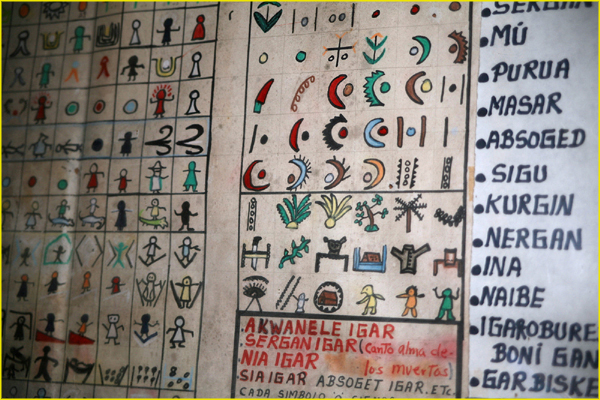 AKWANELE IGAR
SERGAN IGAR (canto alma de-
NIA IGAR los muertos)
SIA IGAR ABSOGET IGAR. ETC.
CADA SIMBOLO
SERGAN
• MÚ
• PURUA
• MASAR
• ABSOGED
• SIGU
• KURGIN
• NERGAN
• INA
• NAIBE
• IGAROBURE
BONI GAN
• GAR BISKE